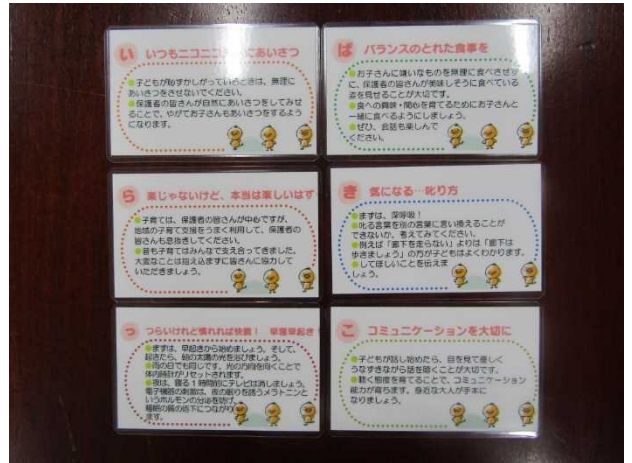 い いつもニコニコ にあいさつ
●子どもが恥ずかしがっているときは、無理に
あいさつをさせないでください。
●保護者の皆さんが自然にあいさつをしてみせ
ることで、やがてお子さんもあいさつをするよう
になります。
ば バランスのとれた食事を
●お子さんに嫌いなものを無理に食べさせず
に、保護者の皆さんが美味しそうに食べている
姿を見せることが大切です。
●食への興味・関心を育てるためにお子さんと
一緒に食べるようにしましょう。
●ぜひ、会話も楽しんで
ください。
ら 楽じゃないけど、本当は楽しいはず
●子育ては、保護者の皆さんが中心ですが、
地域の子育て支援をうまく利用して、保護者の
皆さんも息抜きしてください。
●昔も子育てはみんなで支え合ってきました。
大変なことは抱え込まずに皆さんに協力して
いただきましょう。
き 気になる…叱り方
●まずは、深呼吸！
●叱る言葉を別の言葉に言い換えることが
できないか、考えてみてください。
●例えば「廊下を走らない」よりは「廊下は
歩きましょう」の方が子どもはよくわかります。
●してほしいことを伝えま
しょう。
っ つらいけれど慣れれば快調！ 早寝早起き
●まずは、早起きから始めましょう。そして、
起きたら、朝の太陽の光を浴びましょう。
●雨の日でも同じです。光の方向を向くことで
体内時計がリセットされます。
●夜は、寝る１時間前にテレビは消しましょう。
電子機器の刺激は、夜の眠りを誘うメラトニンと
いうホルモンの分泌を妨げ、
睡眠の質の低下につながり
ます。
こ コミュニケーションを大切に
●子どもが話し始めたら、目を見て優しく
うなずきながら話を聴くことが大切です。
●聴く態度を育てることで、コミュニケーション
能力が育ちます。身近な大人が手本に
なりましょう。